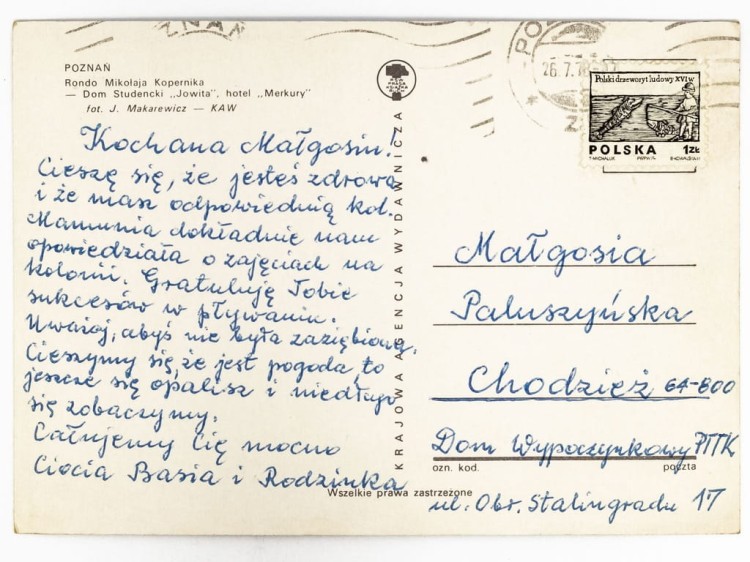 POZNAŃ
Rondo Mikołaja Kopernika
— Dom Studencki „Jowita”, hotel „Merkury”
fot. J. Makarewicz — KAW
Kochana Małgosiu!
Cieszę się, że jesteś zdrowa
i że masz odpowiednią kol.
Mamunia dokładnie nam
opowiedziała o zajęciach na
kolonii. Gratuluję Tobie
sukcesów w pływaniu.
Uważaj, abyś nie była zaziębiona.
Cieszymy się, że jest pogoda, to
jeszcze się opalisz i niedługo
się zobaczymy.
Całujemy Cię mocno
Ciocia Basia i Rodzinka
KRAJOWA AGENCJA WYDAWNICZA
Wszelkie prawa zastrzeżone
POZNAŃ
26.7.78
Polski drzeworyt ludowy XVI w
POLSKA 1ZŁ
Małgosia
Paluszyńska
Chodzież 64-800
Dom Wypoczynkowy PTTK
ozn. kod. poczta
ul. Obr. Stalingradu 17